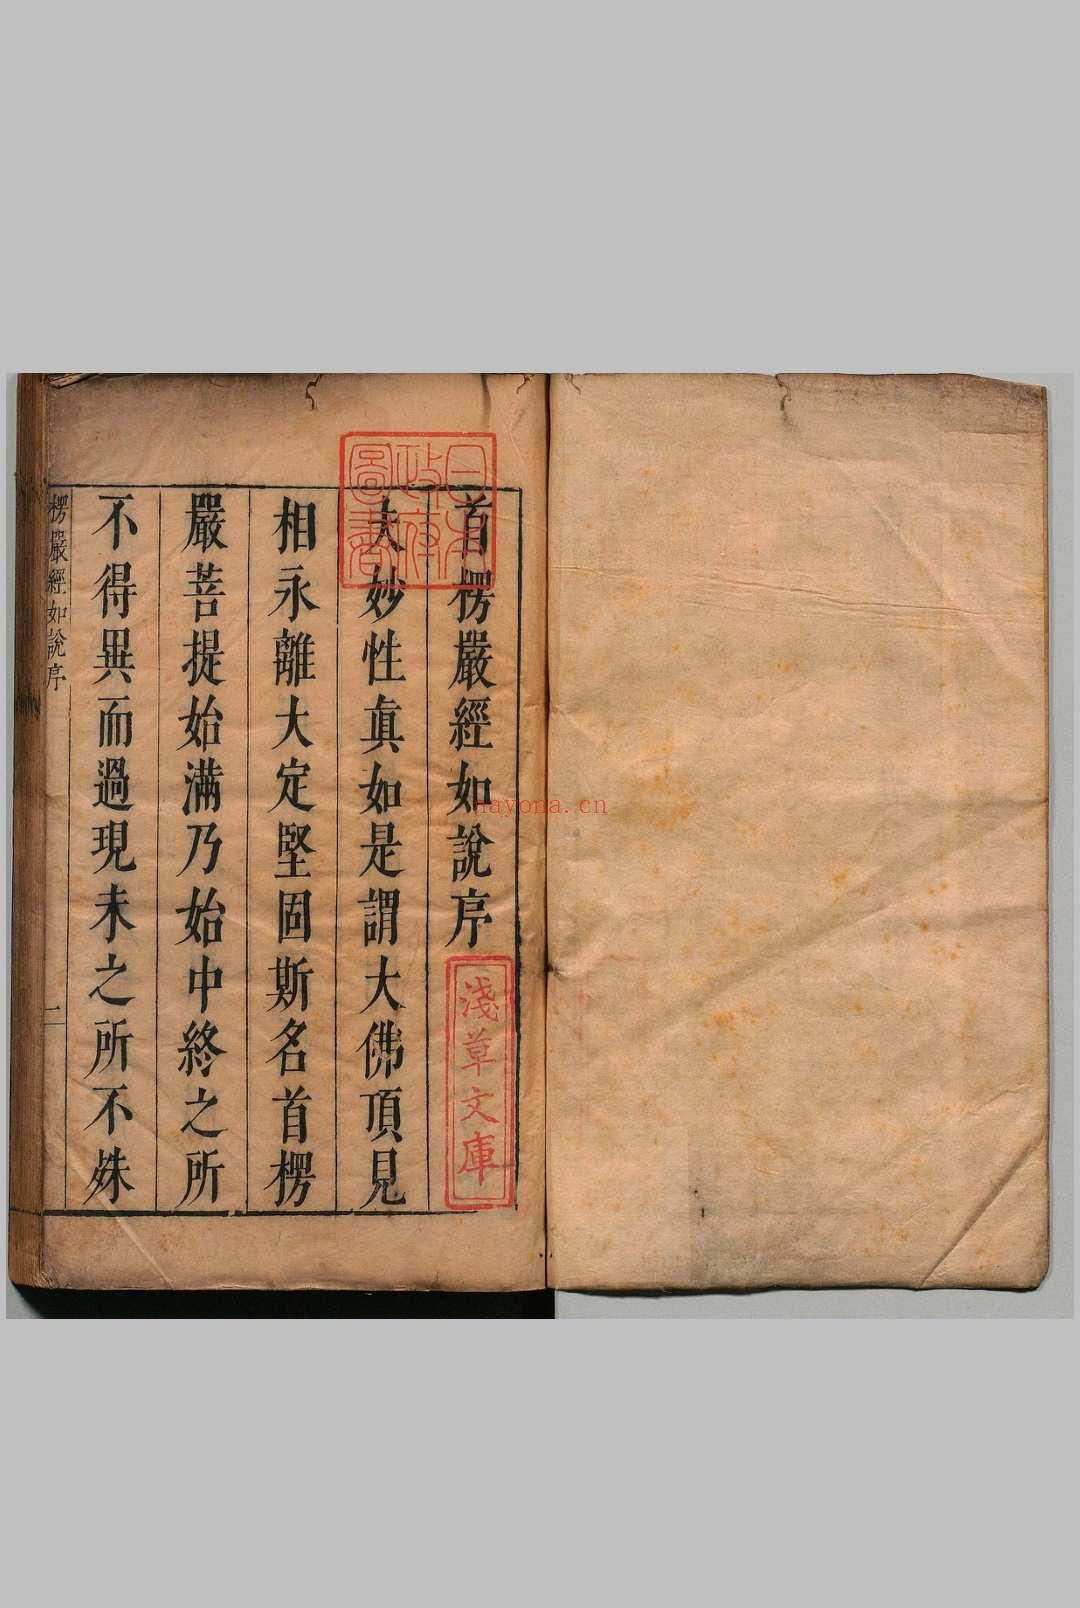 首楞嚴經如說序
夫妙性眞如是謂大佛頂見
相永離大定堅固斯名首楞
嚴菩提始滿乃始中終之所
不得異而過現未之所不殊
楞嚴經如說序
一
日本
政府
圖書
淺草文庫
nayona.cn